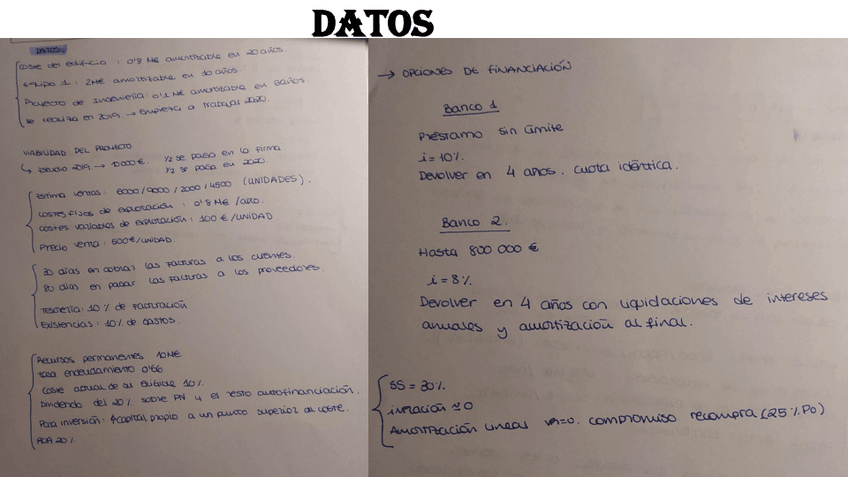 DATOS
DATOS:
Coste del edificio : 0'8 M€ amortizable en 20 años.
Equipo 1 : 2M€ amortizable en 10 años.
Proyecto de Ingeniería: 0'1 M€ amortizable en 5 años
se realiza en 2019. → Empieza a trabajar 2020.
VIABILIDAD DEL PROYECTO
↳ Estudio 2019 → 10000€. 1/2 se paga en la firma.
1/2 se paga en 2020.
Estima ventas: 6000/9000/2000/4500 (UNIDADES).
Costes fijos de explotación : 0'8 M€ /año.
Costes variables de explotación : 100 €/UNIDAD.
Precio venta: 500€/UNIDAD.
30 días en cobrar las facturas a los clientes.
80 días en pagar las facturas a los proveedores
Tesorería: 10% de facturación
Existencias : 10% de gastos.
Recursos permanentes 10M€
tasa endeudamiento 0'66
Coste actual de su exigible 10%.
Dividendo del 20% sobre PN y el resto autofinanciación.
Para inversión: ↑capital propio a un punto superior al coste.
ROA 20%
→ OPCIONES DE FINANCIACIÓN
Banco 1
Préstamo sin límite
i = 10%.
Devolver en 4 años. cuota idéntica.
Banco 2.
Hasta 800 000 €
i = 8%.
Devolver en 4 años con liquidaciones de intereses
anuales y amortización al final.
SS = 30%.
inflación ≃ 0
Amortización lineal VR=0. compromiso recompra (25% P0)